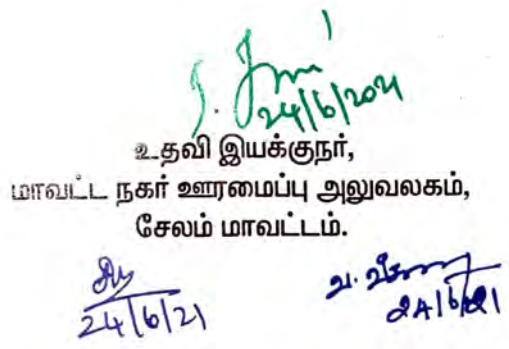 24/6/2021
உதவி இயக்குநர்,
மாவட்ட நகர் ஊரமைப்பு அலுவலகம்,
சேலம் மாவட்டம்.
24/6/21
24/6/21